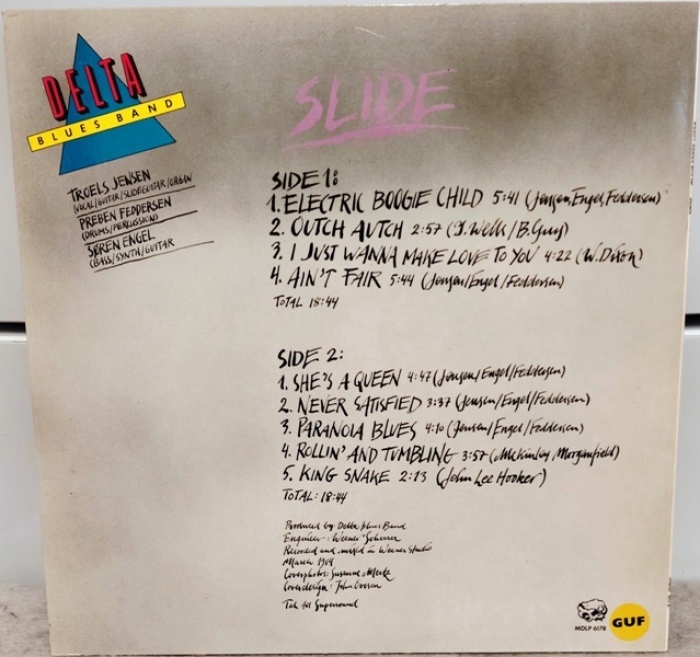 DELTA
BLUES BAND
SLIDE
TROELS JENSEN
(VOCAL/GUITAR/SLIDEGUITAR/ORGAN
PREBEN FEDDERSEN
(DRUMS/PERCUSSION)
SØREN ENGEL
(BASS/SYNTH/GUITAR
SIDE 1:
1. ELECTRIC BOOGIE CHILD 5:41 (Jensen, Engel, Feddersen)
2. OUTCH AUTCH 2:57 (J. Wells / B. Guy)
3. I JUST WANNA MAKE LOVE TO YOU 4:22 (W. Dixon)
4. AIN'T FAIR 5:44 (Jensen/Engel/Feddersen)
TOTAL 18:44
SIDE 2:
1. SHE'S A QUEEN 4:47 (Jensen/Engel/Feddersen)
2. NEVER SATISFIED 3:37 (Jensen/Engel/Feddersen)
3. PARANOIA BLUES 4:10 (Jensen/Engel/Feddersen)
4. ROLLIN' AND TUMBLING 3:57 (McKinley Morganfield)
5. KING SNAKE 2:13 (John Lee Hooker)
TOTAL: 18:44
Produced by: Delta Blues Band
Engineer: Werner Scherrer
Recorded and mixed in Werner Studio
March 1984
Coverphotos: Susanne Mertz
Coverdesign: John Ovesen
Tak til Supersound
MDLP 6178
GUF